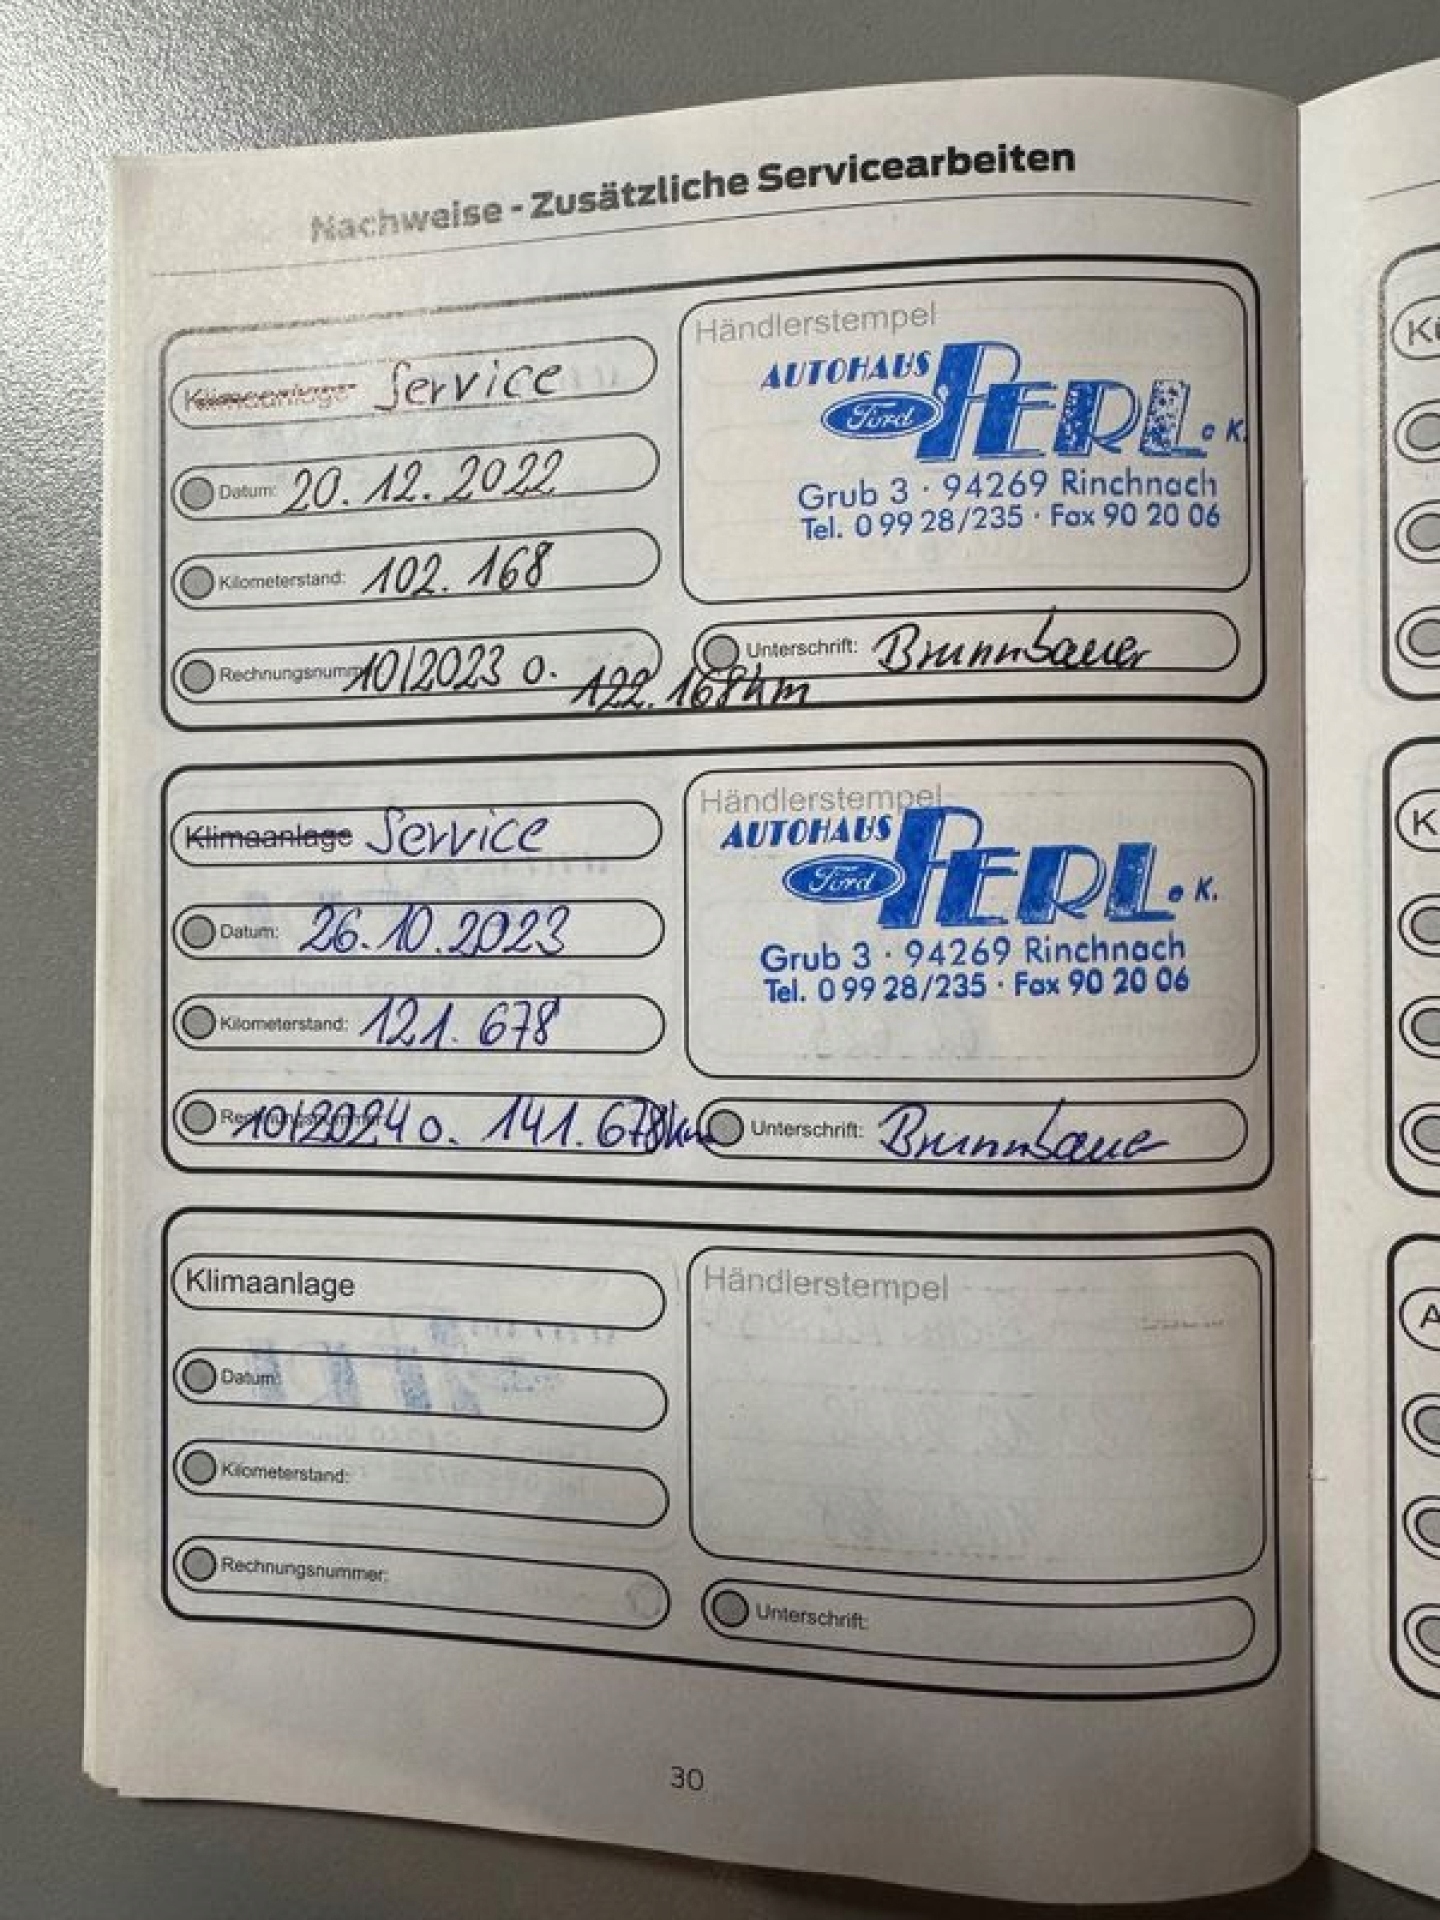 Nachweise - Zusätzliche Servicearbeiten
Klimaanlage Service
Datum: 20. 12. 2022
Kilometerstand: 102. 168
Rechnungsnumm 10/2023 o. 122. 168km
Händlerstempel
AUTOHAUS
Ford PERL e K.
Grub 3 · 94269 Rinchnach
Tel. 0 99 28/235 · Fax 90 20 06
Unterschrift: Brunnbauer
Klimaanlage Service
Datum: 26. 10. 2023
Kilometerstand: 121. 678
Rechnungsnummer: 10/2024 o. 141. 678km
Händlerstempel
AUTOHAUS
Ford PERL e K.
Grub 3 · 94269 Rinchnach
Tel. 0 99 28/235 · Fax 90 20 06
Unterschrift: Brunnbauer
Klimaanlage
Datum:
Kilometerstand:
Rechnungsnummer:
Händlerstempel
Unterschrift:
30